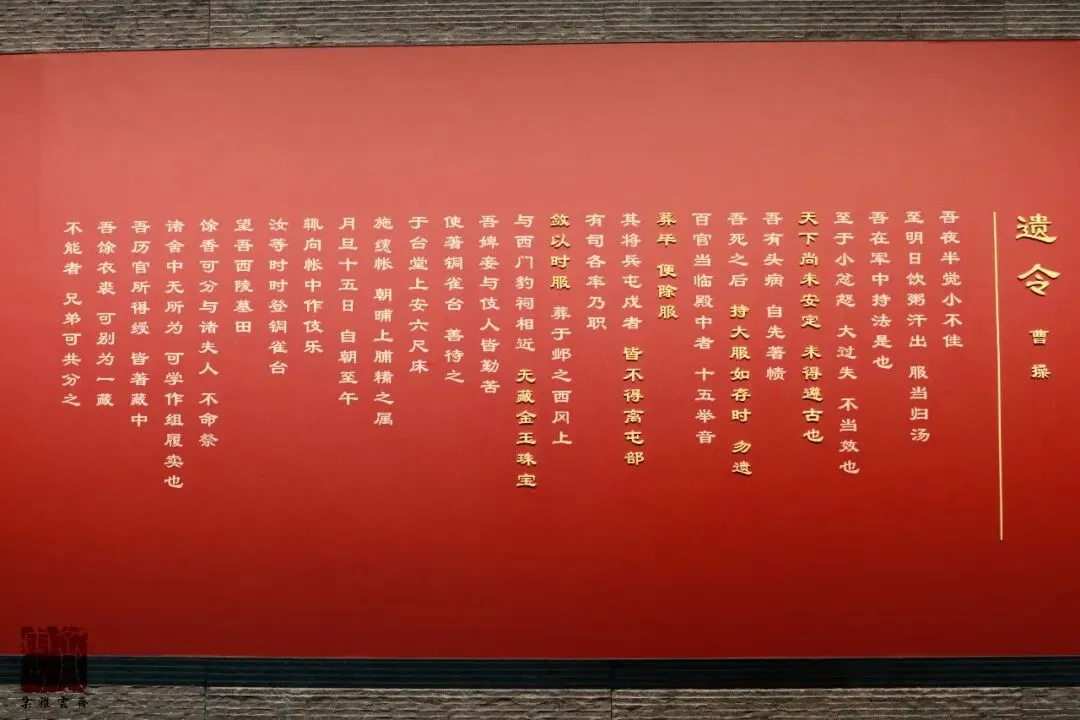 遗令
曹操
吾夜半觉小不佳
至明日饮粥汗出 服当归汤
吾在军中持法是也
至于小忿怒 大过失 不当效也
天下尚未安定 未得遵古也
吾有头病 自先著帻
吾死之后 持大服如存时 勿遗
百官当临殿中者 十五举音
葬毕 便除服
其将兵屯戍者 皆不得离屯部
有司各率乃职
敛以时服 葬于邺之西冈上
与西门豹祠相近 无藏金玉珠宝
吾婢妾与伎人皆勤苦
使著铜雀台 善待之
于台堂上安六尺床
施繐帐 朝晡上脯糒之属
月旦十五日 自朝至午
辄向帐中作伎乐
汝等时时登铜雀台
望吾西陵墓田
馀香可分与诸夫人 不命祭
诸舍中无所为 可学作组履卖也
吾历官所得绶 皆著藏中
吾馀衣裘 可别为一藏
不能者 兄弟可共分之
集雅雲齋